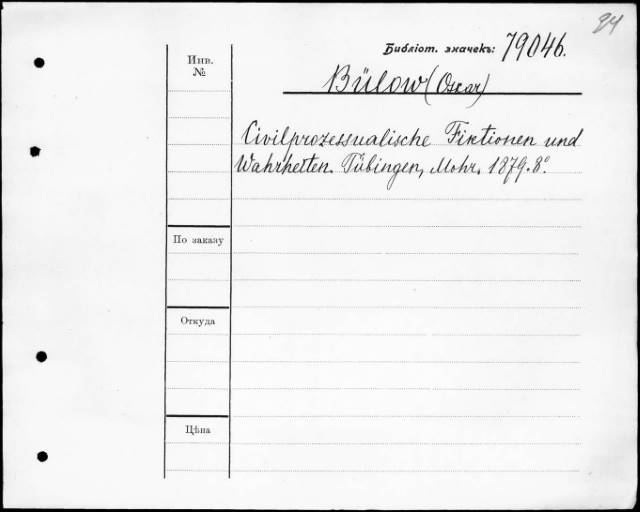 24
Библіот. значекъ: 79046.
Инв.
№
Bülow (Oscar)
Civilprozessualische Fiktionen und
Wahrheiten. Tübingen, Mohr. 1879. 8°.
По заказу
Откуда
Цѣна